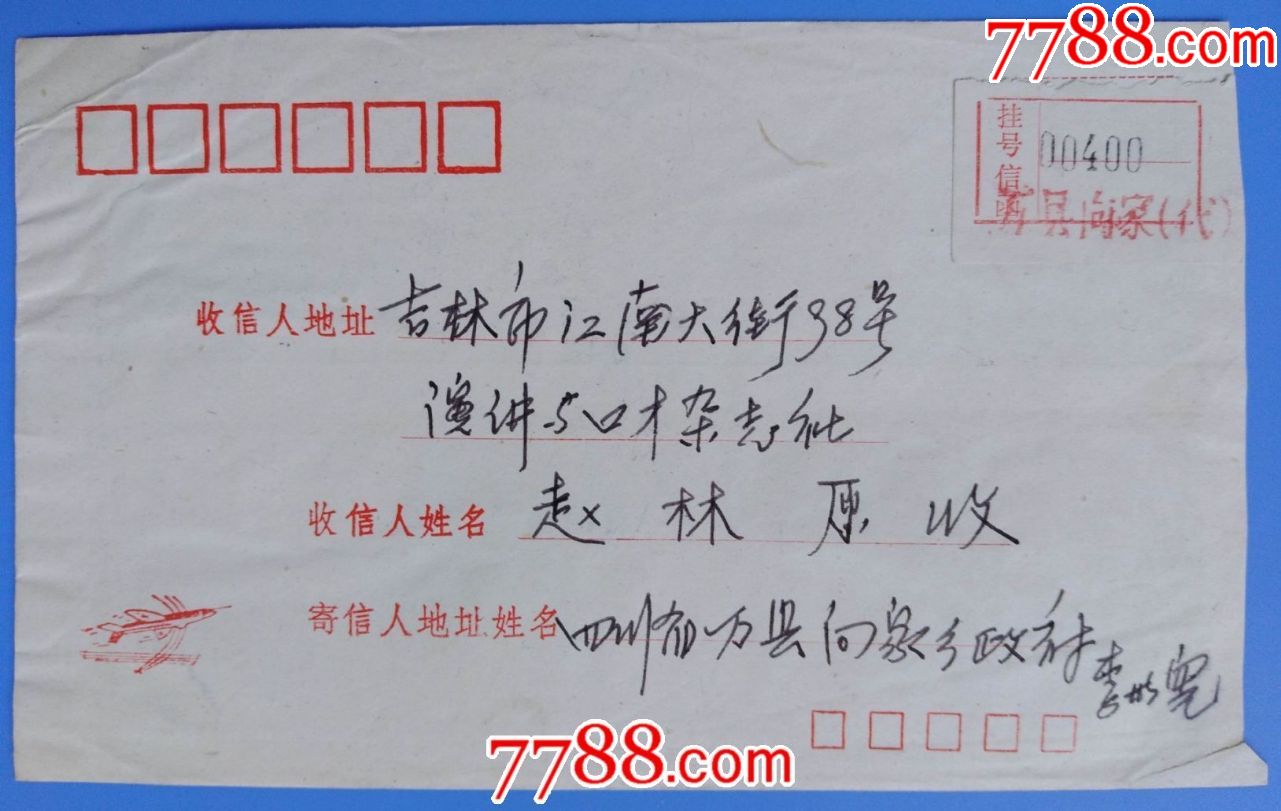 7788.com
挂号信函
00400
万县向家(代)
收信人地址 吉林市江南大街38号
演讲与口才杂志社
收信人姓名 赵林原 收
寄信人地址姓名 四川省万县向家乡政府
李
7788.com